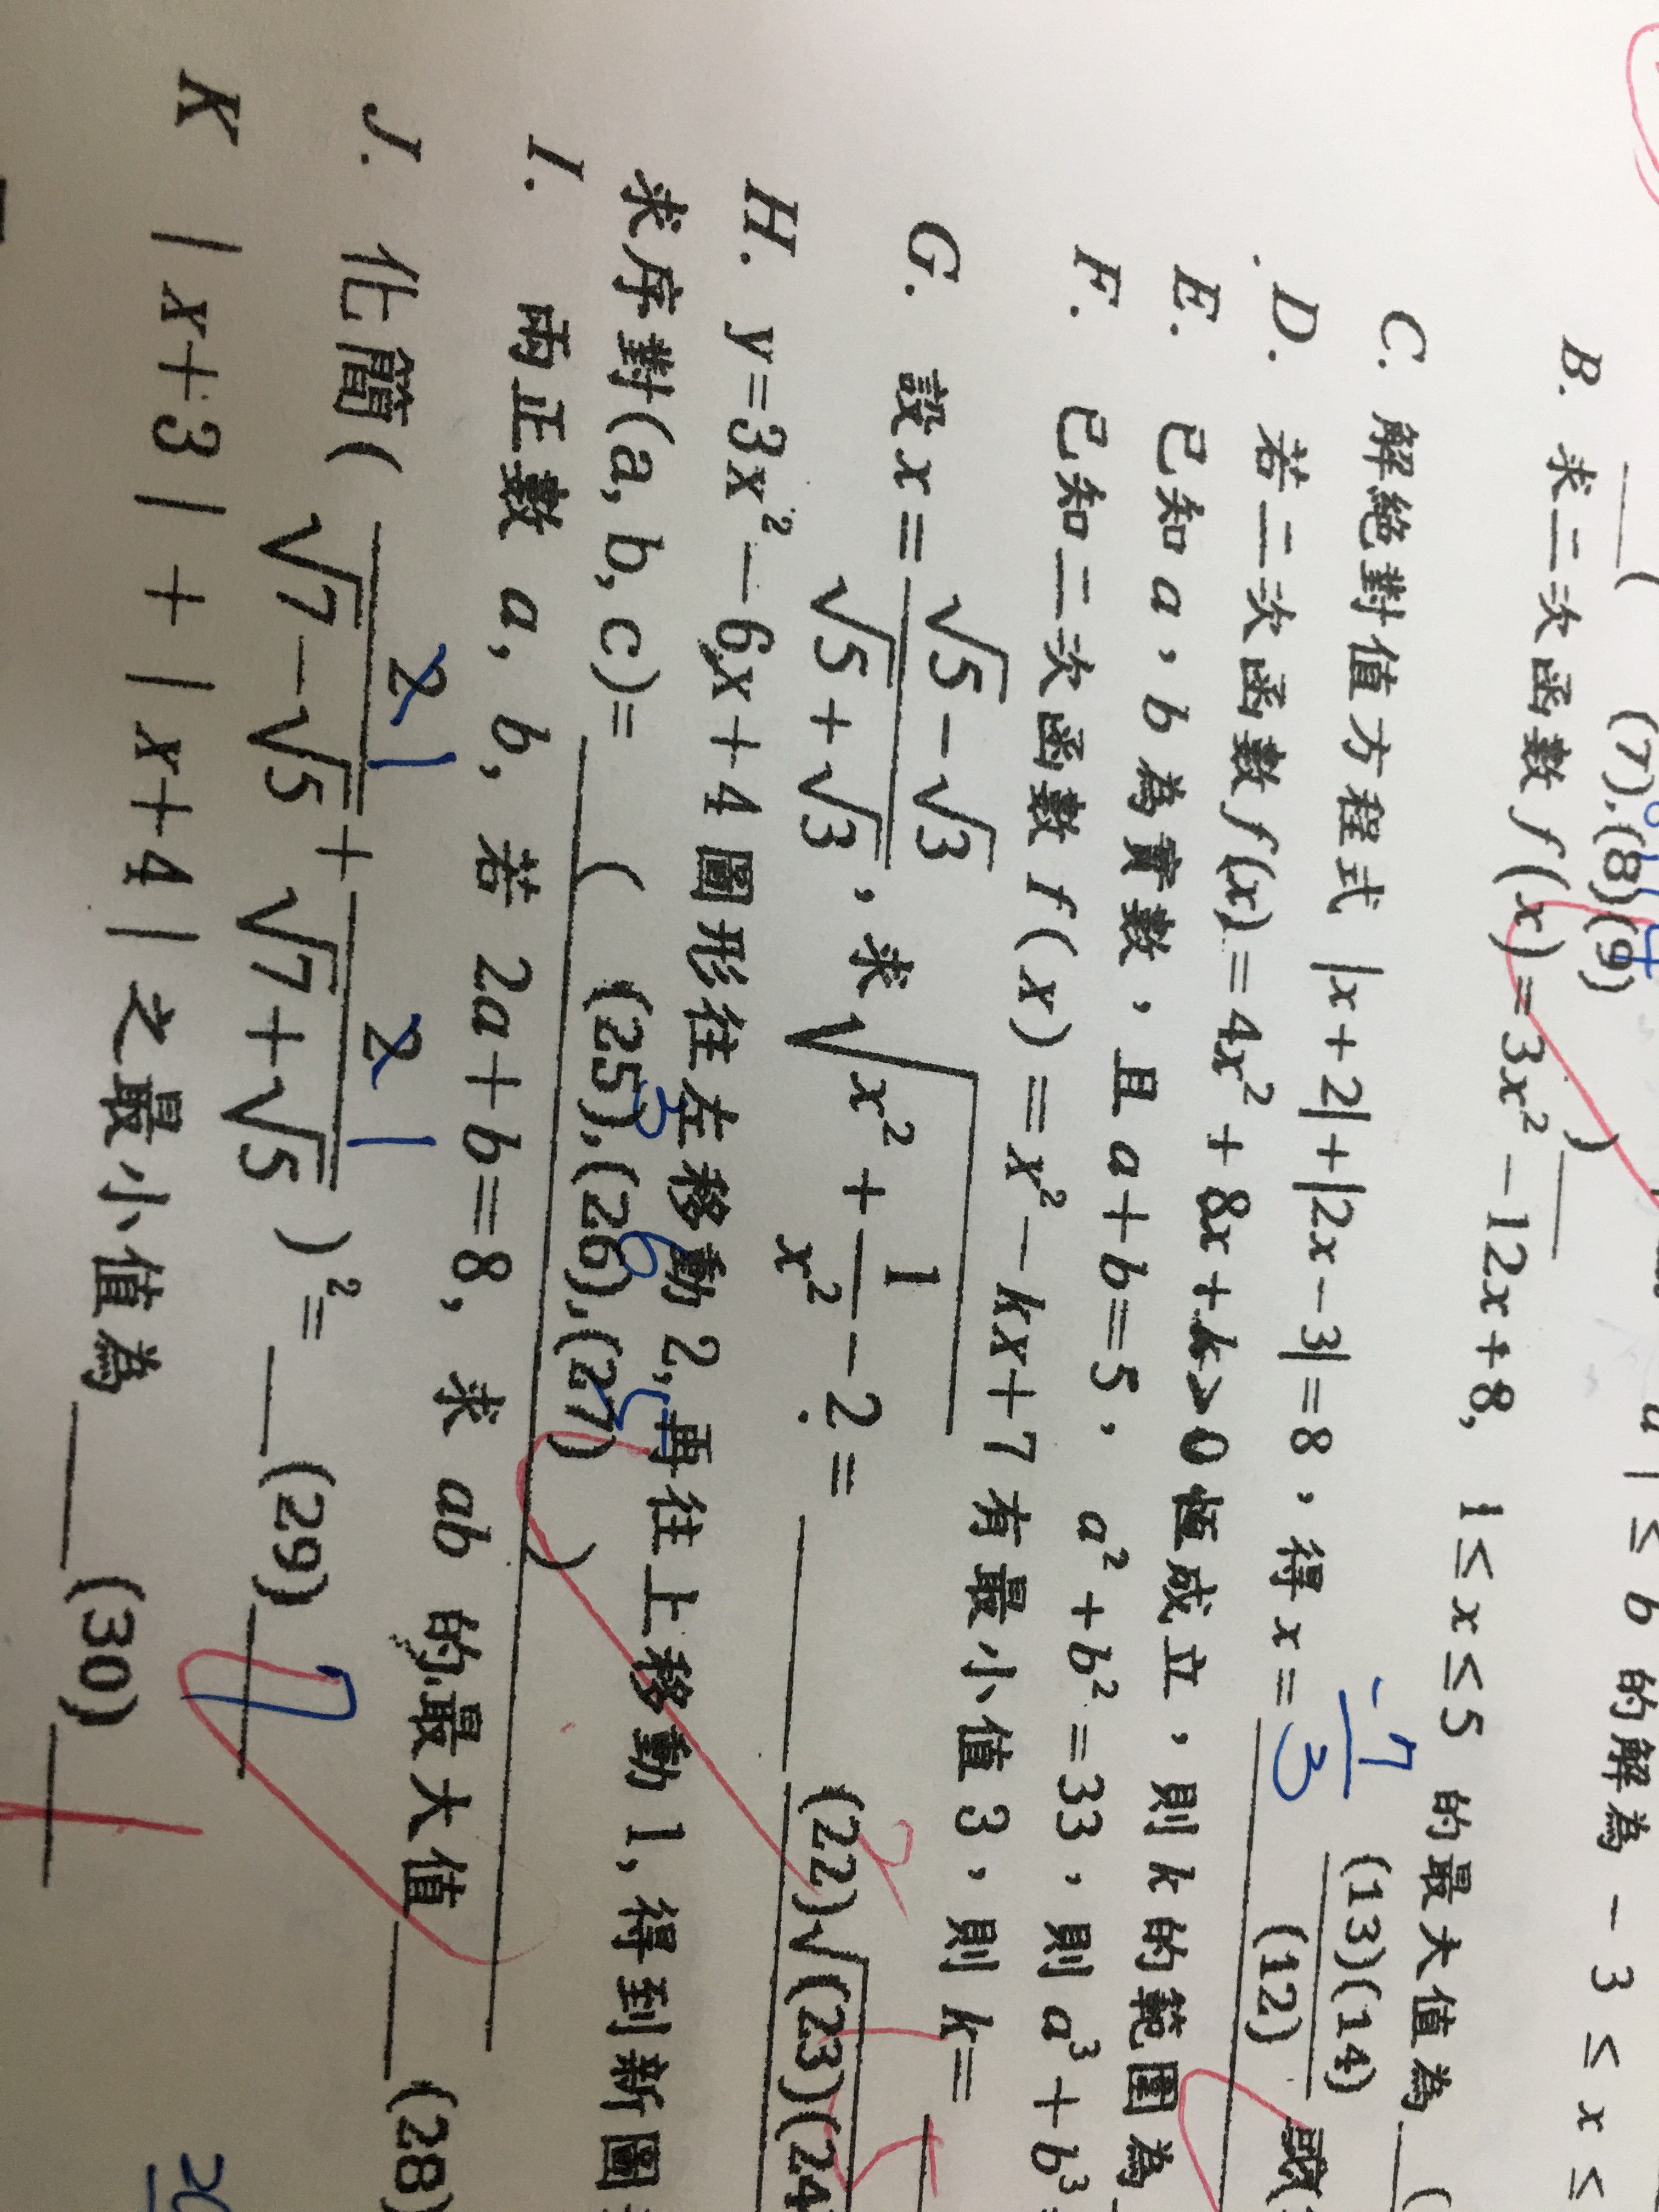 a | ≤ b 的解為 -3 ≤ x ≤
( (7),(8)(9) )
B. 求二次函數 f(x)=3x²-12x+8, 1≤x≤5 的最大值為
C. 解絕對值方程式 |x+2|+|2x-3|=8,得 x= -7/3 (13)(14)/(12) 或
D. 若二次函數 f(x)=4x²+8x+k>0 恆成立,則 k 的範圍為
E. 已知 a,b 為實數,且 a+b=5, a²+b²=33,則 a³+b³=
F. 已知二次函數 f(x)=x²-kx+7 有最小值 3,則 k=
G. 設 x=(√5-√3)/(√5+√3),求 √(x²+1/x²-2)= (22)√(23)(24 2
H. y=3x²-6x+4 圖形往左移動 2, 再往上移動 1, 得到新圖
求序對(a,b,c)= ( (25),(26),(27) ) 3 6
I. 兩正數 a, b, 若 2a+b=8, 求 ab 的最大值 (28)
J. 化簡( 1/(√7-√5) + 1/(√7+√5) )²= (29) 7
K |x+3|+|x+4|之最小值為 (30)